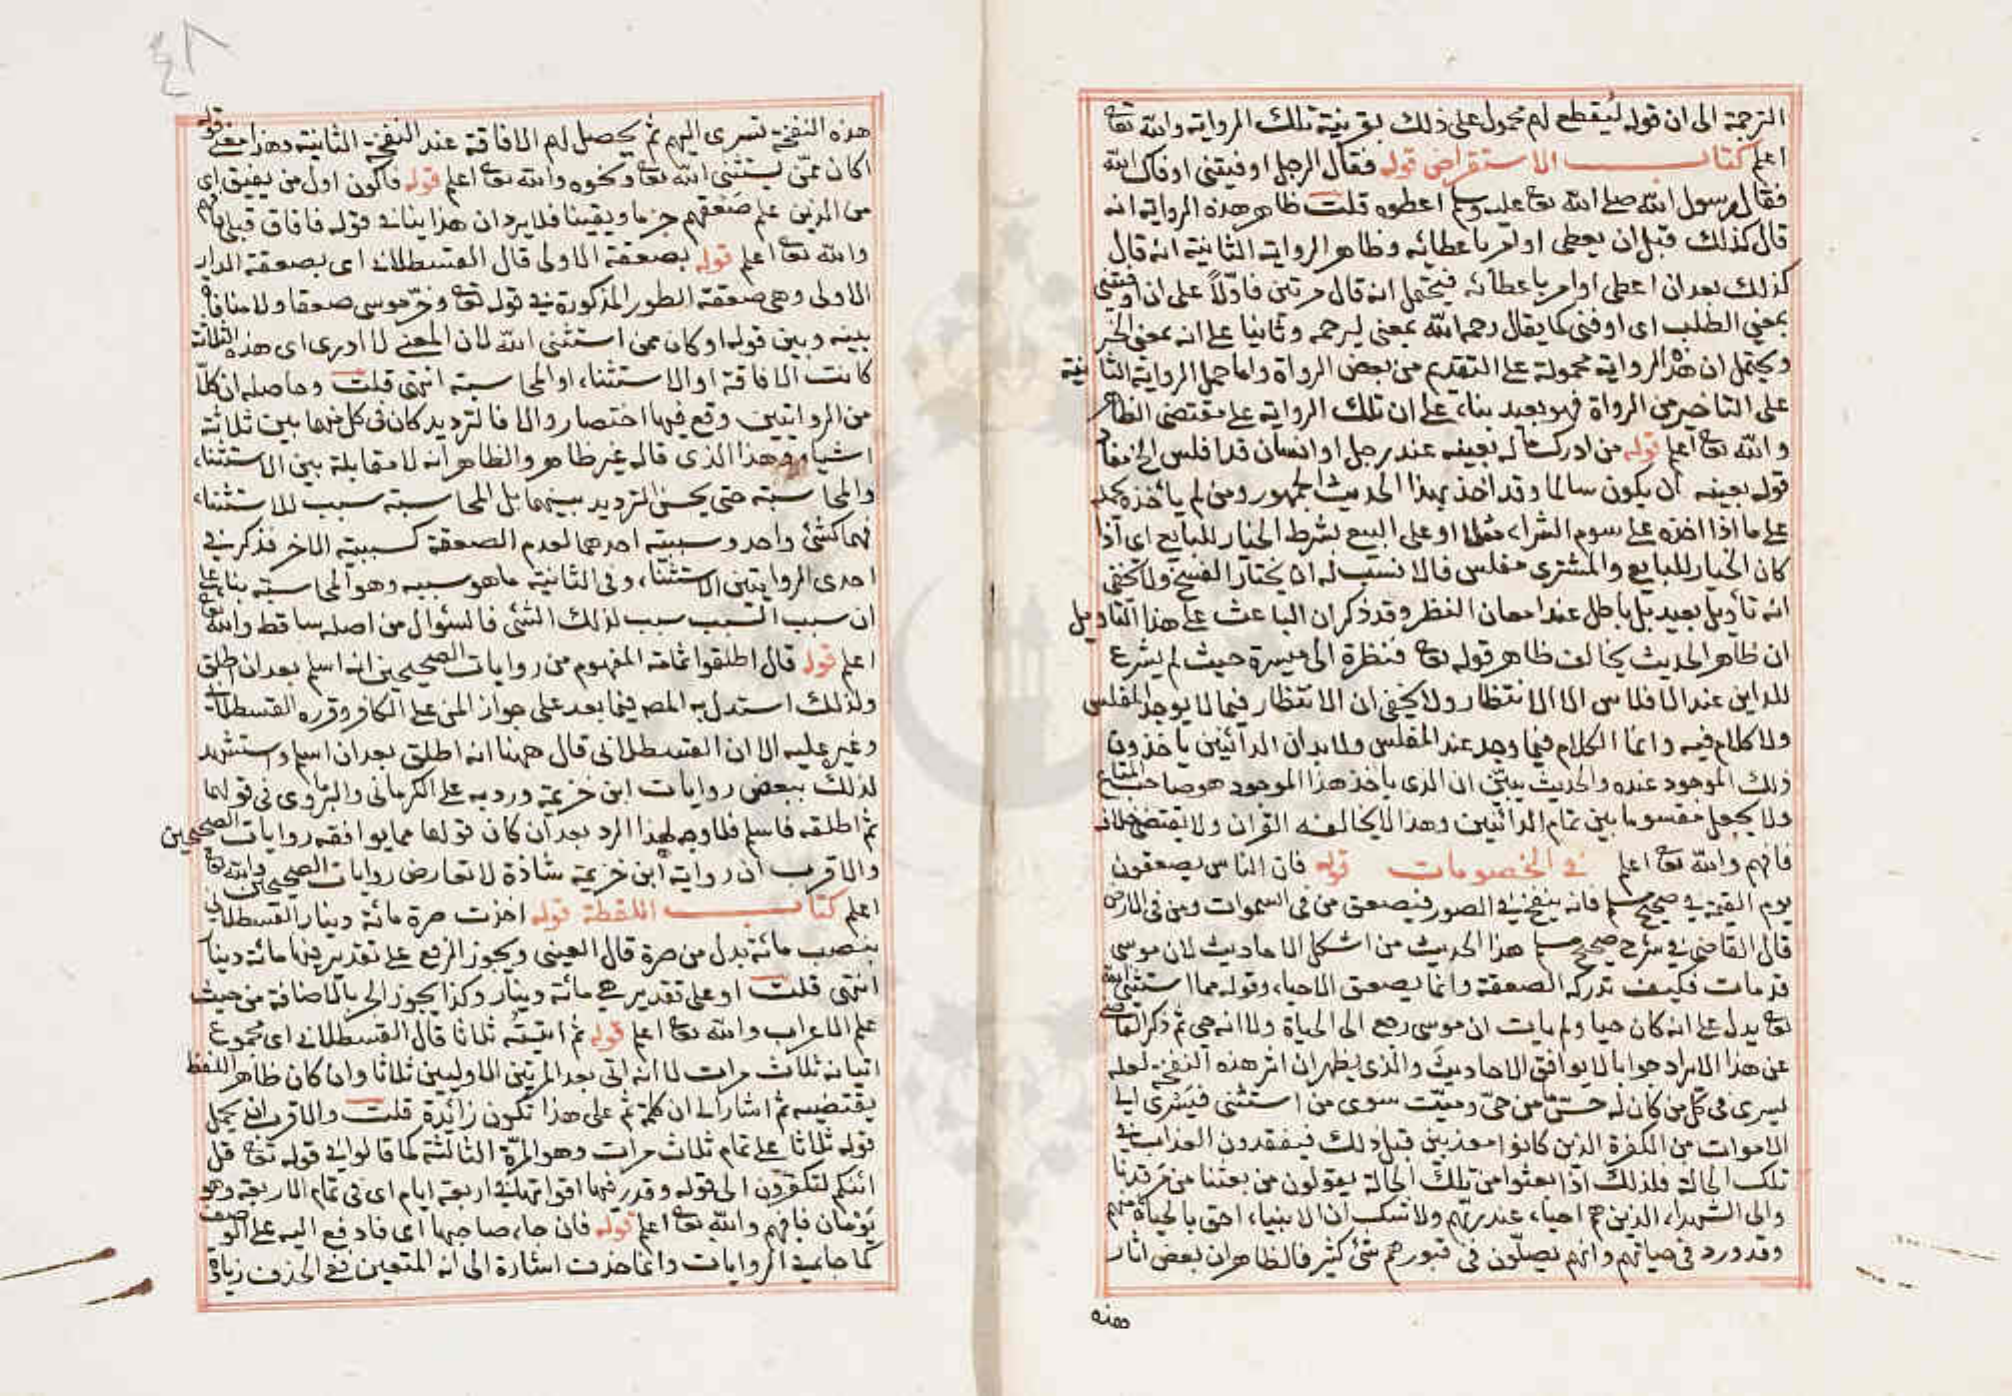 الترجمة الى ان قوله ليقطع لهم محمول على ذلك بقرينة تلك الرواية والله تعا
اعلم كتاب الاستقراض قوله فقال الرجل اوفيتني اوفاك الله
فقال رسول الله صلى الله تعا عليه وسلم اعطوه قلت ظاهر هذه الرواية انه
قال كذلك قبل ان يعطى او امر باعطائه وظاهر الرواية الثانية انه قال
كذلك بعد ان اعطى او امر باعطائه فيحتمل انه قال مرتين فاولاً على ان اوفيتني
بمعنى الطلب اى اوفنى كما يقال رحمه الله بمعنى ليرحمه وثانيا على انه بمعنى الخبر
ويحتمل ان هذه الرواية محمولة على التقديم من بعض الرواة واما حمل الرواية الثانية
على التاخير من الرواة فهو بعيد بناء على ان تلك الرواية على مقتضى الظاهر
والله تعا اعلم قوله من ادرك ماله بعينه عند رجل او انسان قد افلس الخ
قوله بعينه ان يكون سالما وقد اخذ بهذا الحديث الجمهور ومن لم يأخذه يحمله
على ما اذا اخذه على سوم الشراء مثلا او على البيع بشرط الخيار للبايع اى اذا
كان الخيار للبايع والمشترى مفلس فالانسب له ان يختار الفسخ ولا يخفى
انه تأويل بعيد بل باطل عند امعان النظر وقد ذكر ان الباعث على هذا التاويل
ان ظاهر الحديث يخالف ظاهر قوله تعا فنظرة الى ميسرة حيث لم يشرع
للداين عند الافلاس الا الانتظار ولا يخفى ان الانتظار فيما لا يوجد المفلس
ولا كلام فيه وانما الكلام فيما وجد عند المفلس ولا بد ان الدائنين ياخذون
ذلك الموجود عنده والحديث يبين ان الذى ياخذ هذا الموجود هو صاحب المتاع
ولا يجعل مقسوما بين تمام الدائنين وهذا لا يخالفه القران ولا يقتضى خلافه
فافهم والله تعا اعلم في الخصومات قوله فان الناس يصعقون
يوم القيمة في صحيح مسلم فانه ينفخ في الصور فيصعق من فى السموات ومن فى الارض
قال القاضي في شرح صحيح مسلم هذا الحديث من اشكل الاحاديث لان موسى
قد مات فكيف تدركه الصعقة وانما يصعق الاحياء وقوله مما استثنى الله
تعا يدل على انه كان حيا ولم يات ان موسى رجع الى الحياة ولا انه حي ثم ذكر القاضي
عن هذا الايراد جوابا لا يوافق الاحاديث والذى يظهر ان اثر هذه النفخة لعله
ليسرى فى كل من كان له حس ما من حيّ وميّت سوى من استثنى فيسرى الى
الاموات من الكفرة الذين كانوا معذبين قبل ذلك فيفقدون العذاب في
تلك الحالة فلذلك اذا بعثوا من تلك الحالة يقولون من بعثنا من مرقدنا
والى الشهداء الذين هم احياء عند ربهم ولا شك ان الانبياء احق بالحياة منهم
وقد ورد فى حياتهم وانهم يصلّون فى قبورهم شئ كثير فالظاهر ان بعض اثار
هذه
٤٨
هذه النفخة تسرى اليهم ثم يحصل لهم الافاقة عند النفخة الثانية وهذا معنى قوله
اكان ممّن يستثنى الله تعا ونحوه والله تعا اعلم قوله فاكون اول من يفيق اى
من الذين علم صعقهم جزما ويقينا فلا يرد ان هذا ينافى قوله فافاق قبلى فافهم
والله تعا اعلم قوله بصعقة الاولى قال القسطلانى اى بصعقة الدار
الاولى وهى صعقة الطور المذكورة في قوله تعا وخرّ موسى صعقا ولا منافاة
بينه وبين قوله او كان ممن استثنى الله لان المعنى لا ادرى اى هذه الثلاثة
كانت الافاقة او الاستثناء او المحاسبة انتهى قلت وحاصله ان كلاّ
من الروايتين وقع فيها اختصار والا فالترديد كان فى كل منهما بين ثلاثة
اشياء وهذا الذى قاله غير ظاهر والظاهر انه لا مقابلة بين الاستثناء
والمحاسبة حتى يحسن الترديد بينهما بل المحاسبة سبب للاستثناء
فهما كشئ واحد وسببية احدهما لعدم الصعقة كسببية الاخر فذكر في
احدى الروايتين الاستثناء وفى الثانية ما هو سببه وهو المحاسبة بناء على
ان سبب السبب سبب لذلك الشئ فالسؤال من اصله ساقط والله تعا
اعلم قوله قال اطلقوا ثمامة المفهوم من روايات الصحيحين انه اسلم بعد ان اطلق
ولذلك استدل به المصه فيما بعد على جواز المن على الكافر وقرره القسطلانى
وغيره عليه الا ان القسطلانى قال ههنا انه اطلق بعد ان اسلم واستشهد
لذلك ببعض روايات ابن خزيمة ورد به على الكرمانى والبرماوى فى قولهما
ثم اطلقه فاسلم فلا وجه لهذا الرد بعد ان كان قولهما مما يوافقه روايات الصحيحين
والاقرب ان رواية ابن خزيمة شاذة لا تعارض روايات الصحيحين والله تعا
اعلم كتاب اللقطة قوله اخذت صرة مائة دينار القسطلانى
بنصب مائة بدل من صرة قال العينى ويجوز الرفع على تقدير فيها مائة دينار
انتهى قلت او على تقدير هي مائة دينار وكذا يجوز الجر بالاضافة من حيث
علم الاعراب والله تعا اعلم قوله ثم اتيته ثلاثا قال القسطلانى اى مجموع
اتيانه ثلاث مرات لا انه اتى بعد المرتين الاوليين ثلاثا وان كان ظاهر اللفظ
يقتضيه ثم اشار الى ان كلمة ثم على هذا تكون زائدة قلت والاقرب ان يحمل
قوله ثلاثا على تمام ثلاث مرات وهو المرّة الثالثة كما قالوا في قوله تعا قل
ائنكم لتكفرون الى قوله وقدر فيها اقواتها في اربعة ايام اى فى تمام الاربعة وهو
يومان فافهم والله تعا اعلم قوله فان جاء صاحبها اى فادفع اليه على الوصف
كما جاء في الروايات وانما حذف اشارة الى انه المتعين ففى الحذف زيادة